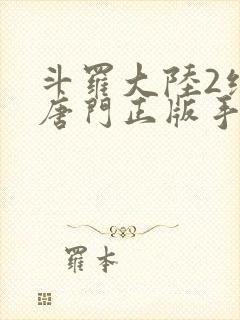 斗羅大陸2
唐門正版手
羅本